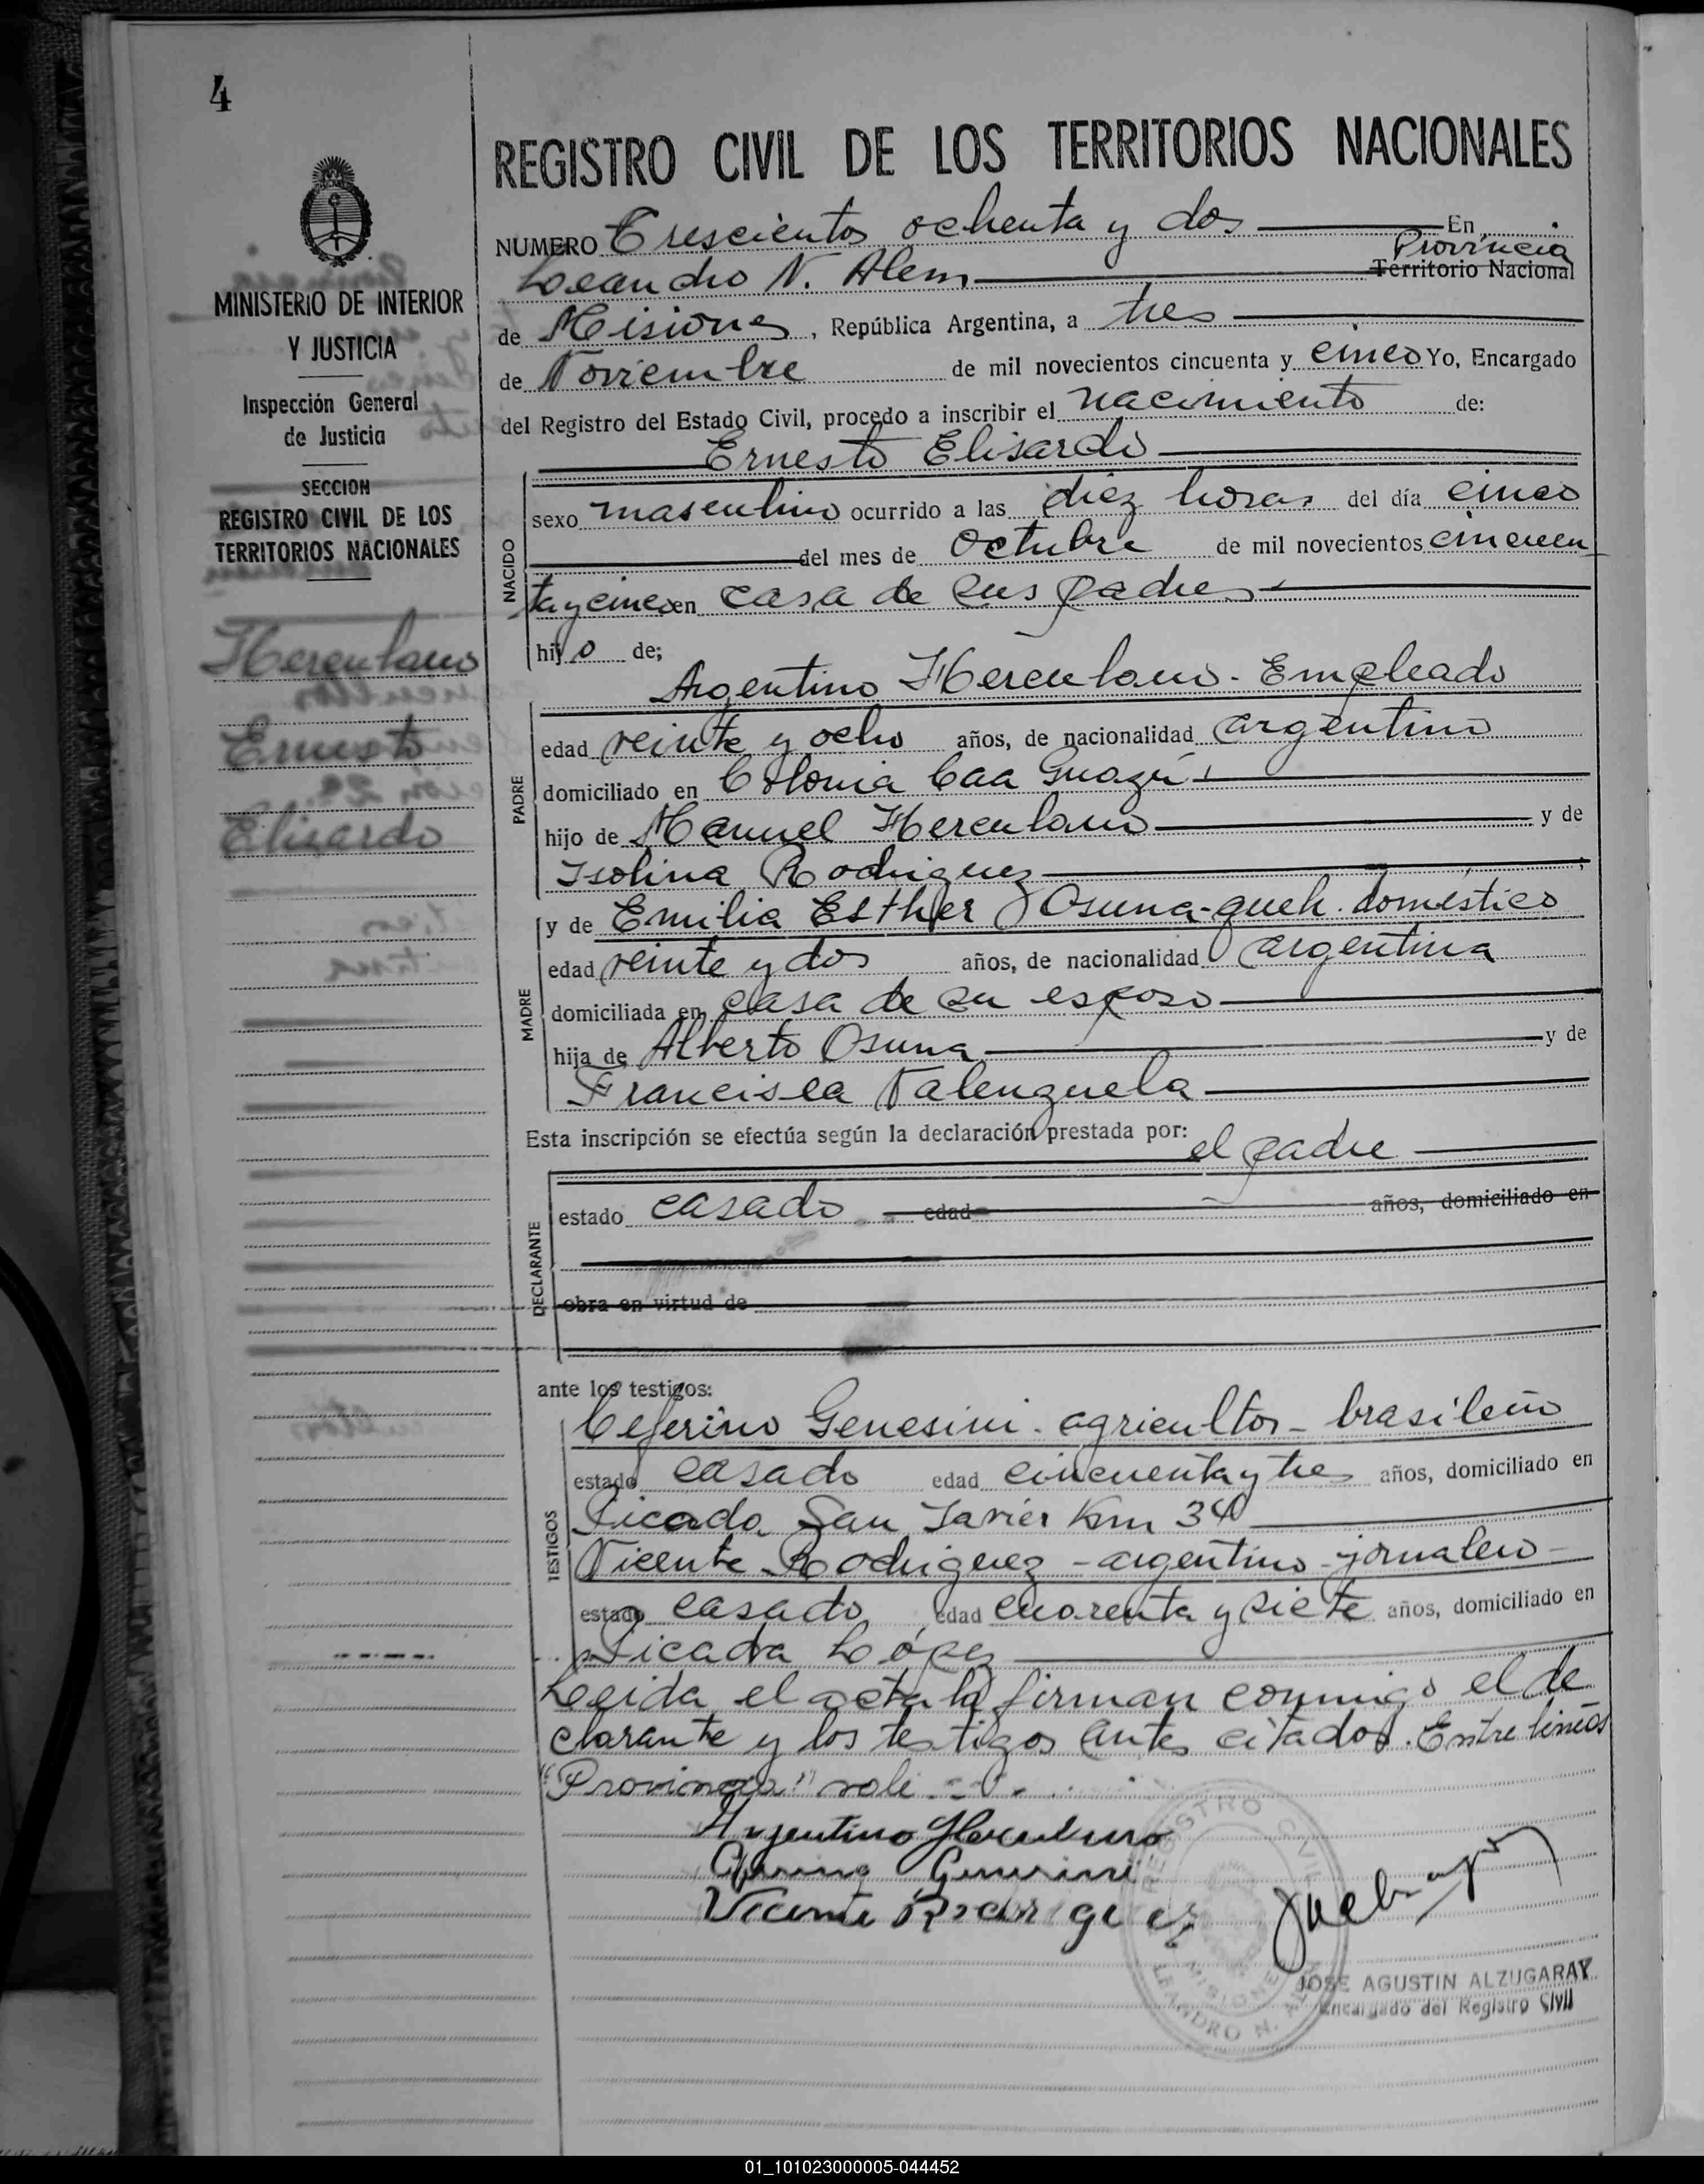 4
REGISTRO CIVIL DE LOS TERRITORIOS NACIONALES
MINISTERIO DE INTERIOR
Y JUSTICIA
Inspección General
de Justicia
SECCION
REGISTRO CIVIL DE LOS
TERRITORIOS NACIONALES
Herculano
Ernesto
Elisardo
NUMERO Trescientos ochenta y dos En
Provincia
Leandro N. Alem Territorio Nacional
de Misiones, República Argentina, a tres
de Noviembre de mil novecientos cincuenta y cinco Yo, Encargado
del Registro del Estado Civil, procedo a inscribir el nacimiento de:
Ernesto Elisardo
NACIDO
sexo masculino ocurrido a las diez horas del día cinco
del mes de Octubre de mil novecientos cincuen
ta y cinco en casa de sus padres
hijo de;
Argentino Herculano - Empleado
PADRE
edad veinte y ocho años, de nacionalidad argentino
domiciliado en Colonia Caa Guazú
hijo de Manuel Herculano y de
Isolina Rodriguez
MADRE
y de Emilia Esther Osuna - queh. doméstico
edad veinte y dos años, de nacionalidad argentina
domiciliada en casa de su esposo
hija de Alberto Osuna y de
Francisca Valenzuela
Esta inscripción se efectúa según la declaración prestada por: el padre
DECLARANTE
estado casado edad años, domiciliado en
obra en virtud de
ante los testigos:
TESTIGOS
Ceferino Genesini - agricultor - brasileño
estado casado edad cincuenta y tres años, domiciliado en
Picada San Javier Km 34
Vicente Rodriguez - argentino - jornalero -
estado casado edad cuarenta y siete años, domiciliado en
Picada López
Leida el acta la firman conmigo el de
clarante y los testigos antes citados. Entre lineas
"Provincia" vale
Argentino Herculano
Genesini
Vicente Rodrigez
REGISTRO CIVIL
MISIONES
LEANDRO N. ALEM
JOSE AGUSTIN ALZUGARAY
Encargado del Registro Civil
01_101023000005-044452